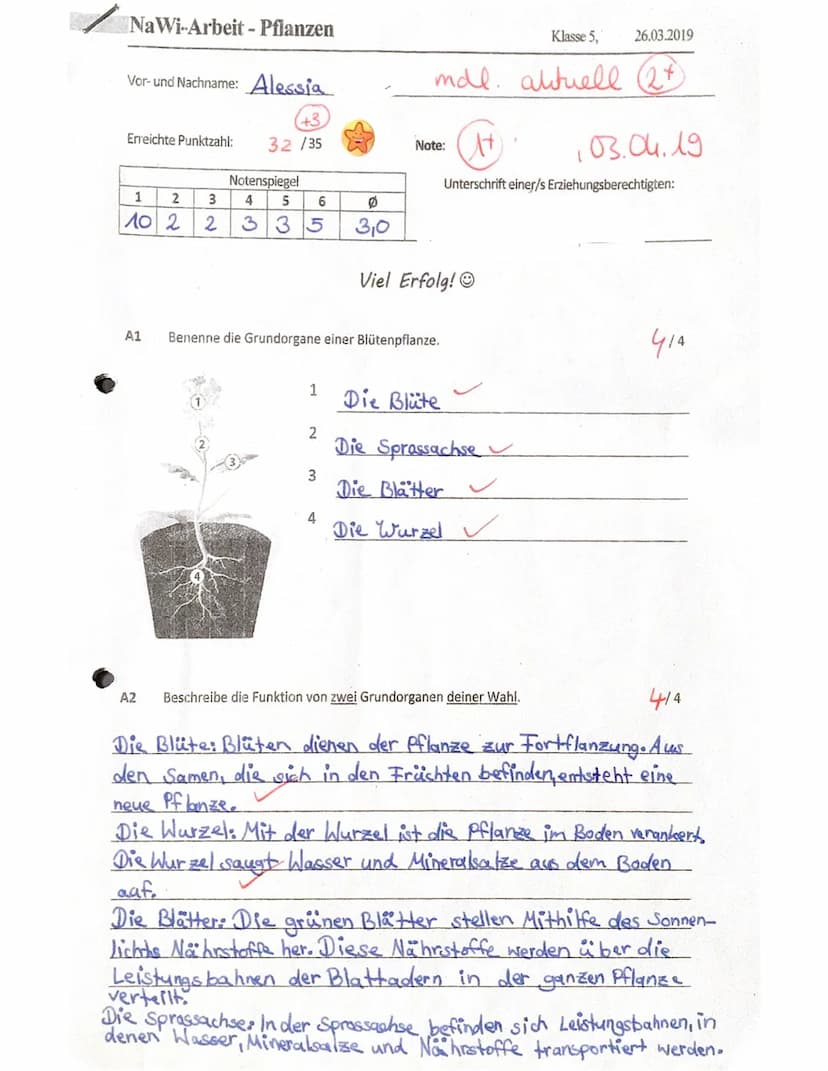 NaWi-Arbeit - Pflanzen
Klasse 5, 26.03.2019
Vor- und Nachname: Alessia mdl. aktuell 2+
+3
Erreichte Punktzahl: 32 /35 Note: 1+ , 03.04.19
Notenspiegel
1 2 3 4 5 6 Ø
10 2 2 3 3 5 3,0
Unterschrift einer/s Erziehungsberechtigten:
Viel Erfolg! ☺
A1 Benenne die Grundorgane einer Blütenpflanze. 4/4
1 Die Blüte
2 Die Sprossachse
3 Die Blätter
4 Die Wurzel
1
2
3
4
A2 Beschreibe die Funktion von zwei Grundorganen deiner Wahl. 4/4
Die Blüte: Blüten dienen der Pflanze zur Fortflanzung. Aus
den Samen, die sich in den Früchten befinden, entsteht eine
neue Pflanze.
Die Wurzel: Mit der Wurzel ist die Pflanze im Boden verankert.
Die Wurzel saugt Wasser und Mineralsalze aus dem Boden
auf.
Die Blätter: Die grünen Blätter stellen Mithilfe des Sonnen-
lichts Nährstoffe her. Diese Nährstoffe werden über die
Leistungsbahnen der Blattadern in der ganzen Pflanze
verteilt.
Die Sprossachse: In der Sprossachse befinden sich Leistungsbahnen, in
denen Wasser, Mineralsalze und Nährstoffe transportiert werden.